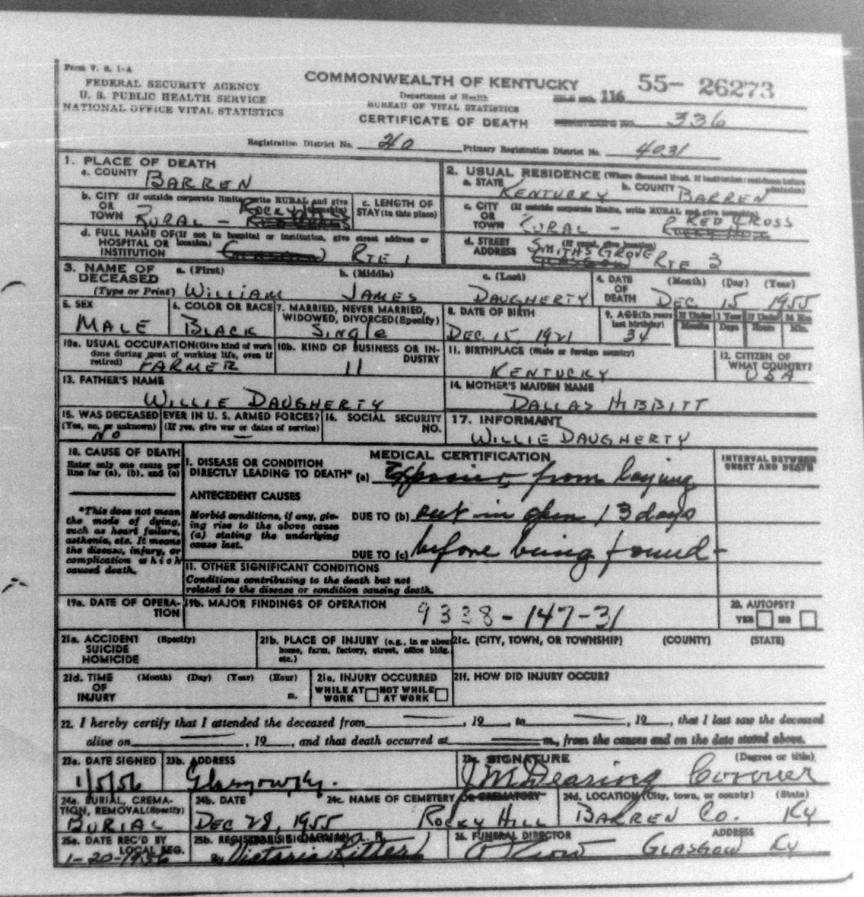 Form V. S. 1-A
FEDERAL SECURITY AGENCY
U. S. PUBLIC HEALTH SERVICE
NATIONAL OFFICE VITAL STATISTICS
COMMONWEALTH OF KENTUCKY
Department of Health
BUREAU OF VITAL STATISTICS
CERTIFICATE OF DEATH
116 55- 26273
336
Registration District No. 210 Primary Registration District No. 4031
1. PLACE OF DEATH
a. COUNTY BARREN
2. USUAL RESIDENCE (Where deceased lived. If institution: residence before admission)
a. STATE KENTUCKY b. COUNTY BARREN
b. CITY (If outside corporate limits, write RURAL and give
OR
TOWN RURAL - ROCKY HILL
c. LENGTH OF
STAY (in this place)
c. CITY (If outside corporate limits, write RURAL and give
OR
TOWN RURAL - RED CROSS
d. FULL NAME OF (If not in hospital or institution, give street address or location)
HOSPITAL OR
INSTITUTION GLASGOW RTE 1
d. STREET (If rural, give location)
ADDRESS SMITHS GROVE RTE 2
3. NAME OF DECEASED
(Type or Print)
a. (First) b. (Middle) c. (Last)
WILLIAM JAMES DAUGHERTY
4. DATE OF DEATH (Month) (Day) (Year)
DEC 15 1955
5. SEX
MALE
6. COLOR OR RACE
BLACK
7. MARRIED, NEVER MARRIED, WIDOWED, DIVORCED (Specify)
SINGLE
8. DATE OF BIRTH
DEC. 15, 1921
9. AGE (In years last birthday)
34
If Under 1 Year If Under 24 Hrs
Months Days Hours Min.
10a. USUAL OCCUPATION (Give kind of work done during most of working life, even if retired)
FARMER
10b. KIND OF BUSINESS OR INDUSTRY
11
11. BIRTHPLACE (State or foreign country)
KENTUCKY
12. CITIZEN OF WHAT COUNTRY?
USA
13. FATHER'S NAME
WILLIE DAUGHERTY
14. MOTHER'S MAIDEN NAME
DALLAS HIBBITT
15. WAS DECEASED EVER IN U. S. ARMED FORCES?
(Yes, no, or unknown) (If yes, give war or dates of service)
NO —
16. SOCIAL SECURITY NO.
17. INFORMANT
WILLIE DAUGHERTY
18. CAUSE OF DEATH
Enter only one cause per line for (a), (b), and (c)
*This does not mean the mode of dying, such as heart failure, asthenia, etc. It means the disease, injury, or complication which caused death.
MEDICAL CERTIFICATION
INTERVAL BETWEEN ONSET AND DEATH
I. DISEASE OR CONDITION
DIRECTLY LEADING TO DEATH* (a) from laying
ANTECEDENT CAUSES
Morbid conditions, if any, giving rise to the above cause (a) stating the underlying cause last.
DUE TO (b) out in open 13 days
DUE TO (c) before being found -
II. OTHER SIGNIFICANT CONDITIONS
Conditions contributing to the death but not
related to the disease or condition causing death.
19a. DATE OF OPERATION
19b. MAJOR FINDINGS OF OPERATION
9338-147-31
20. AUTOPSY?
YES NO
21a. ACCIDENT (Specify)
SUICIDE
HOMICIDE
21b. PLACE OF INJURY (e.g., in or about home, farm, factory, street, office bldg. etc.)
21c. (CITY, TOWN, OR TOWNSHIP) (COUNTY) (STATE)
21d. TIME OF INJURY (Month) (Day) (Year) (Hour) m.
21e. INJURY OCCURRED
WHILE AT WORK NOT WHILE AT WORK
21f. HOW DID INJURY OCCUR?
22. I hereby certify that I attended the deceased from , 19 to , 19 , that I last saw the deceased
alive on , 19 , and that death occurred at m., from the causes and on the date stated above.
23a. DATE SIGNED
1/5/56
23b. ADDRESS
Glasgow Ky.
23c. SIGNATURE (Degree or title)
J M Dearing Coroner
24a. BURIAL, CREMATION, REMOVAL (Specify)
BURIAL
24b. DATE
DEC 28, 1955
24c. NAME OF CEMETERY OR CREMATORY
ROCKY HILL
24d. LOCATION (City, town, or county) (State)
BARREN CO. KY
25a. DATE REC'D BY LOCAL REG.
1-20-1956
25b.
By Victoria
26. FUNERAL DIRECTOR ADDRESS
GLASGOW KY